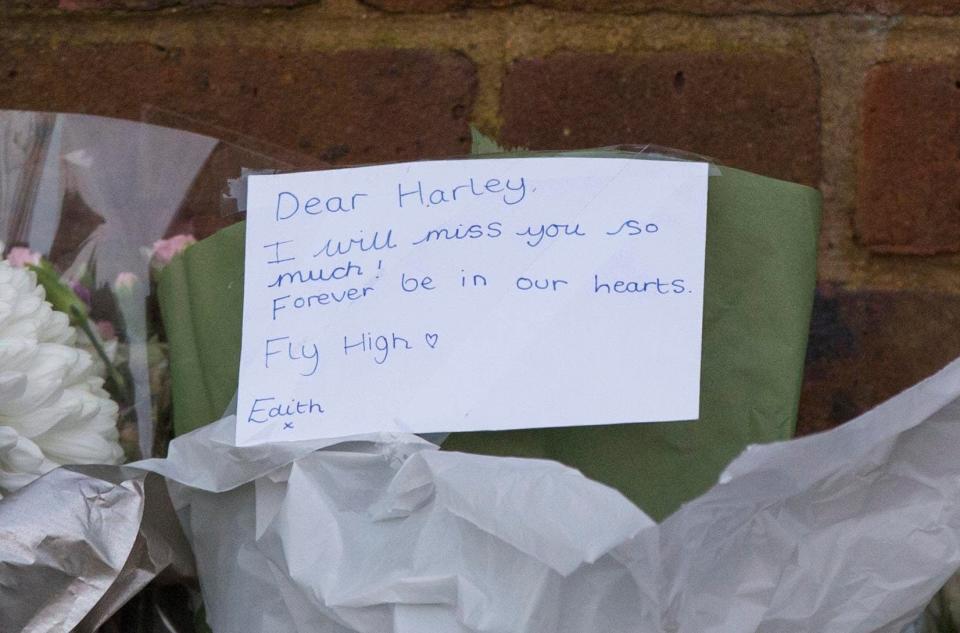 Dear Harley,
I will miss you so
much!
Forever be in our hearts.
Fly High ♡
Edith
x